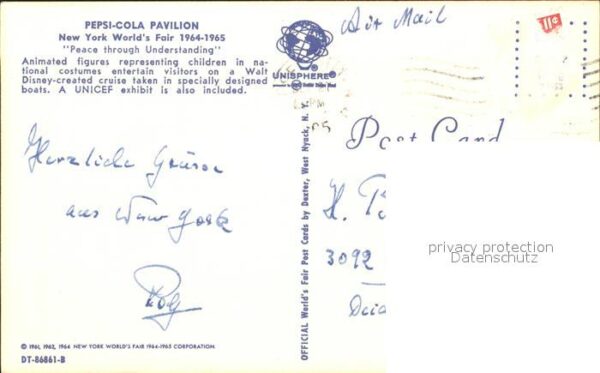 PEPSI-COLA PAVILION
New York World's Fair 1964-1965
"Peace through Understanding"
Animated figures representing children in na-
tional costumes entertain visitors on a Walt
Disney-created cruise taken in specially designed
boats. A UNICEF exhibit is also included.
Herzliche Grüsse
aus New York
Rolf
© 1961, 1962, 1964 NEW YORK WORLD'S FAIR 1964-1965 CORPORATION.
DT-86861-B
OFFICIAL World's Fair Post Cards by Dexter, West Nyack, N. Y.
UNISPHERE®
Air Mail
11¢
Post Card
H.
3092
privacy protection
Datenschutz